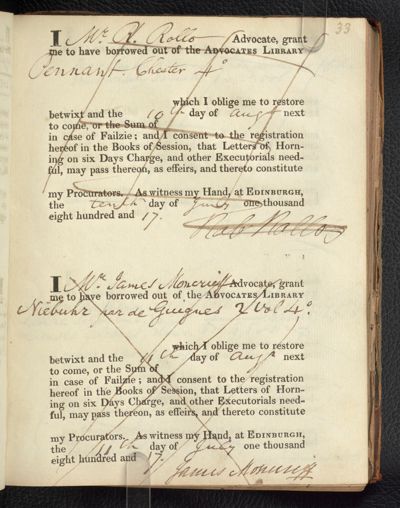 33
I Mr. R. Rollo Advocate, grant
me to have borrowed out of the ADVOCATES LIBRARY
Pennant. Chester 4o
which I oblige me to restore
betwixt and the 10th day of Augt next
to come, or the Sum of
in case of Failzie; and I consent to the registration
hereof in the Books of Session, that Letters of Horn-
ing on six Days Charge, and other Executorials need-
ful, may pass thereon, as effeirs, and thereto constitute
my Procurators. As witness my Hand, at EDINBURGH,
the tenth day of July one thousand
eight hundred and 17.
Rob Rollo
I Mr. James Moncrieff Advocate, grant
me to have borrowed out of the ADVOCATES LIBRARY
Niebuhr par de Guignes 2 Vol 4o.
which I oblige me to restore
betwixt and the 11th day of Augt next
to come, or the Sum of
in case of Failzie; and I consent to the registration
hereof in the Books of Session, that Letters of Horn-
ing on six Days Charge, and other Executorials need-
ful, may pass thereon, as effeirs, and thereto constitute
my Procurators. As witness my Hand, at EDINBURGH,
the 11th day of July one thousand
eight hundred and 17.
James Moncrieff